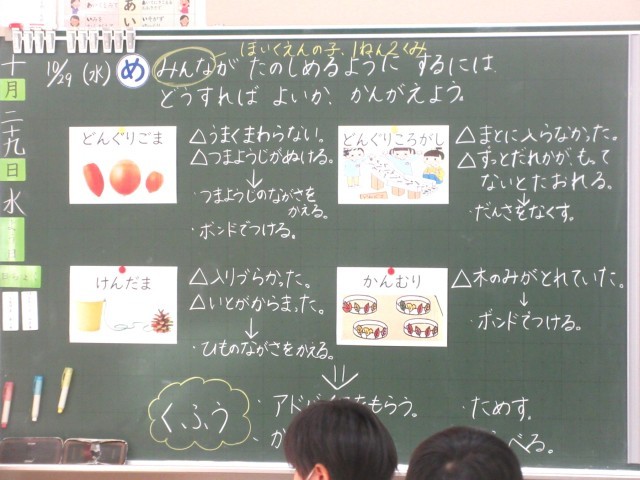 ほいくえんの子、1ねん2くみ
十月二十九日水
10/29(水)
め
みんながたのしめるようにするには、
どうすればよいか、かんがえよう。
どんぐりごま
△うまくまわらない。
△つまようじがぬける。
↓
・つまようじのながさを
かえる。
・ボンドでつける。
どんぐりころがし
△まとに入らなかった。
△ずっとだれかが、もって
ないとたおれる。
↓
・だんさをなくす。
けんだま
△入りづらかった。
△いとがからまった。
↓
・ひものながさをかえる。
かんむり
△木のみがとれていた。
↓
・ボンドでつける。
くふう
・アドバイスをもらう。
・ためす。
べる。